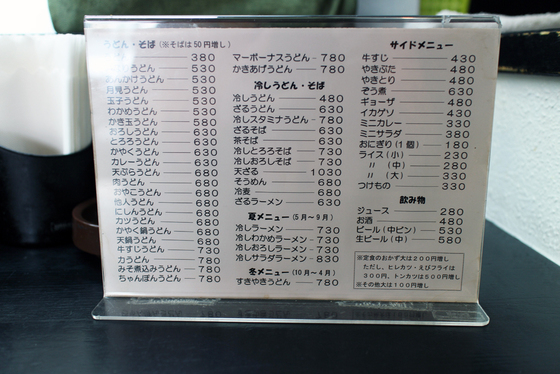 うどん・そば (※そばは50円増し)
380
うどん 530
あんかけうどん 530
月見うどん 530
玉子うどん 530
わかめうどん 530
かき玉うどん 580
おろしうどん 630
とろろうどん 630
かやくうどん 630
カレーうどん 630
天ぷらうどん 680
肉うどん 680
おやこうどん 680
他人うどん 680
にしんうどん 680
カツうどん 680
かやく鍋うどん 680
天鍋うどん 680
牛すじうどん 730
力うどん 780
みそ煮込みうどん 780
ちゃんぽんうどん 780
マーボーナスうどん 780
かきあげうどん 780
冷しうどん・そば
冷しうどん 480
ざるうどん 630
冷しスタミナうどん 780
ざるそば 630
茶そば 630
冷しとろろそば 730
冷しおろしそば 730
天ざる 1030
そうめん 680
冷麦 680
ざるラーメン 630
夏メニュー (5月~9月)
冷しラーメン 730
冷しわかめラーメン 730
冷しおろしラーメン 730
冷しサラダラーメン 830
冬メニュー (10月~4月)
すきやきうどん 780
サイドメニュー
牛すじ 430
やきぶた 480
やきとり 480
ぞう煮 630
ギョーザ 480
イカゲソ 430
ミニカレー 330
ミニサラダ 380
おにぎり(1個) 180
ライス(小) 230
〃 (中) 280
〃 (大) 330
つけもの 330
飲み物
ジュース 280
お酒 480
ビール(中ビン) 530
生ビール(中) 580
※定食のおかず大は200円増し
ただし、ヒレカツ・えびフライは
300円、トンカツは500円増し
※その他大は100円増し